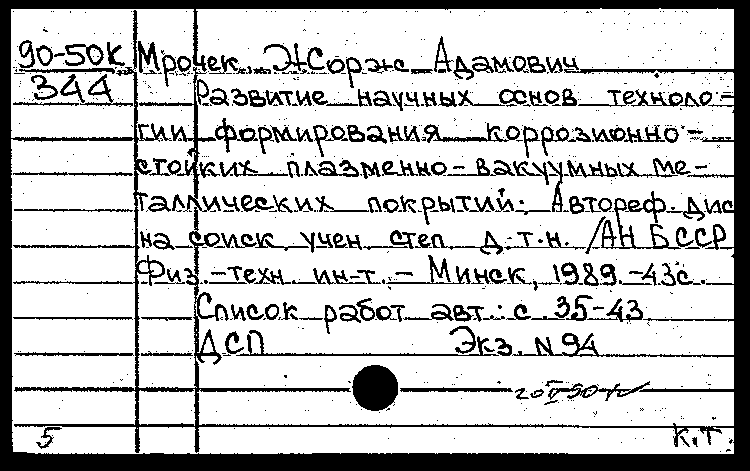 90-50К Мрочек, Жорж Адамович
344 Развитие научных основ техноло-
гии формирования коррозионно-
стойких плазменно-вакуумных ме-
таллических покрытий: Автореф. дис
на соиск. учен. степ. д.т.н. /АН БССР
Физ.-техн. ин-т.- Минск, 1989.-43с.
Список работ авт.: с. 35-43
ДСП Экз. N 94
5 К.Т.